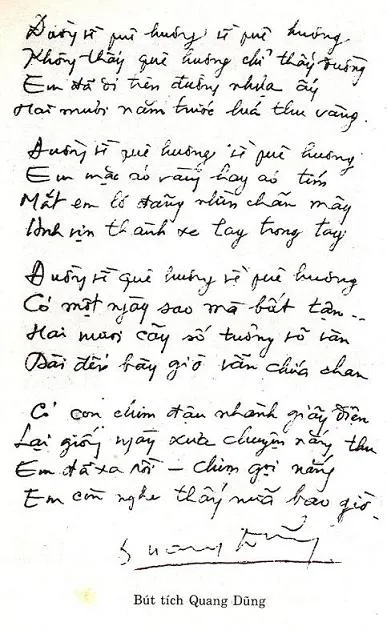 Đường về quê hương về quê hương
Không thấy quê hương chỉ thấy đường
Em đã đi trên đường nhựa ấy
Hai mươi năm trước lá thu vàng.
Đường về quê hương về quê hương
Em mặc áo vàng hay áo tím
Mắt em lơ đãng nhìn chân mây
Anh vịn thành xe tay trong tay
Đường về quê hương về quê hương
Có một ngày sao mà bất tân...
Hai mươi cây số tưởng vô vàn
Dài đến bây giờ vẫn chứa chan
Có con chim đậu nhành giây điện
Lại giống ngày xưa chuyện nắng thu
Em đã xa rồi - chim gọi nắng
Em còn nghe thấy nữa bao giờ.
Quang Dũng
Bút tích Quang Dũng